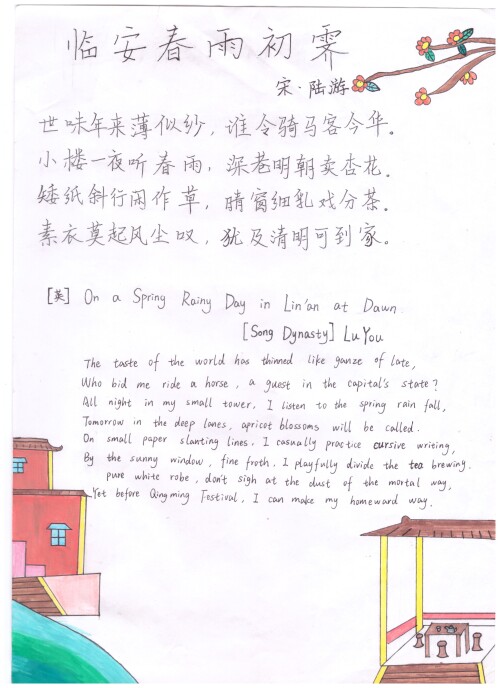 临安春雨初霁
宋·陆游
世味年来薄似纱，谁令骑马客今华。
小楼一夜听春雨，深巷明朝卖杏花。
矮纸斜行闲作草，晴窗细乳戏分茶。
素衣莫起风尘叹，犹及清明可到家。
[英] On a Spring Rainy Day in Lin'an at Dawn.
[Song Dynasty] Lu You
The taste of the world has thinned like ganze of late,
Who bid me ride a horse, a guest in the capital's state?
All night in my small tower, I listen to the spring rain fall,
Tomorrow in the deep lanes, apricot blossoms will be called.
On small paper slanting lines, I casually practice cursive writing,
By the sunny window, fine froth, I playfully divide the tea brewing.
pure white robe, don't sigh at the dust of the mortal way,
Yet before Qingming Festival, I can make my homeward way.